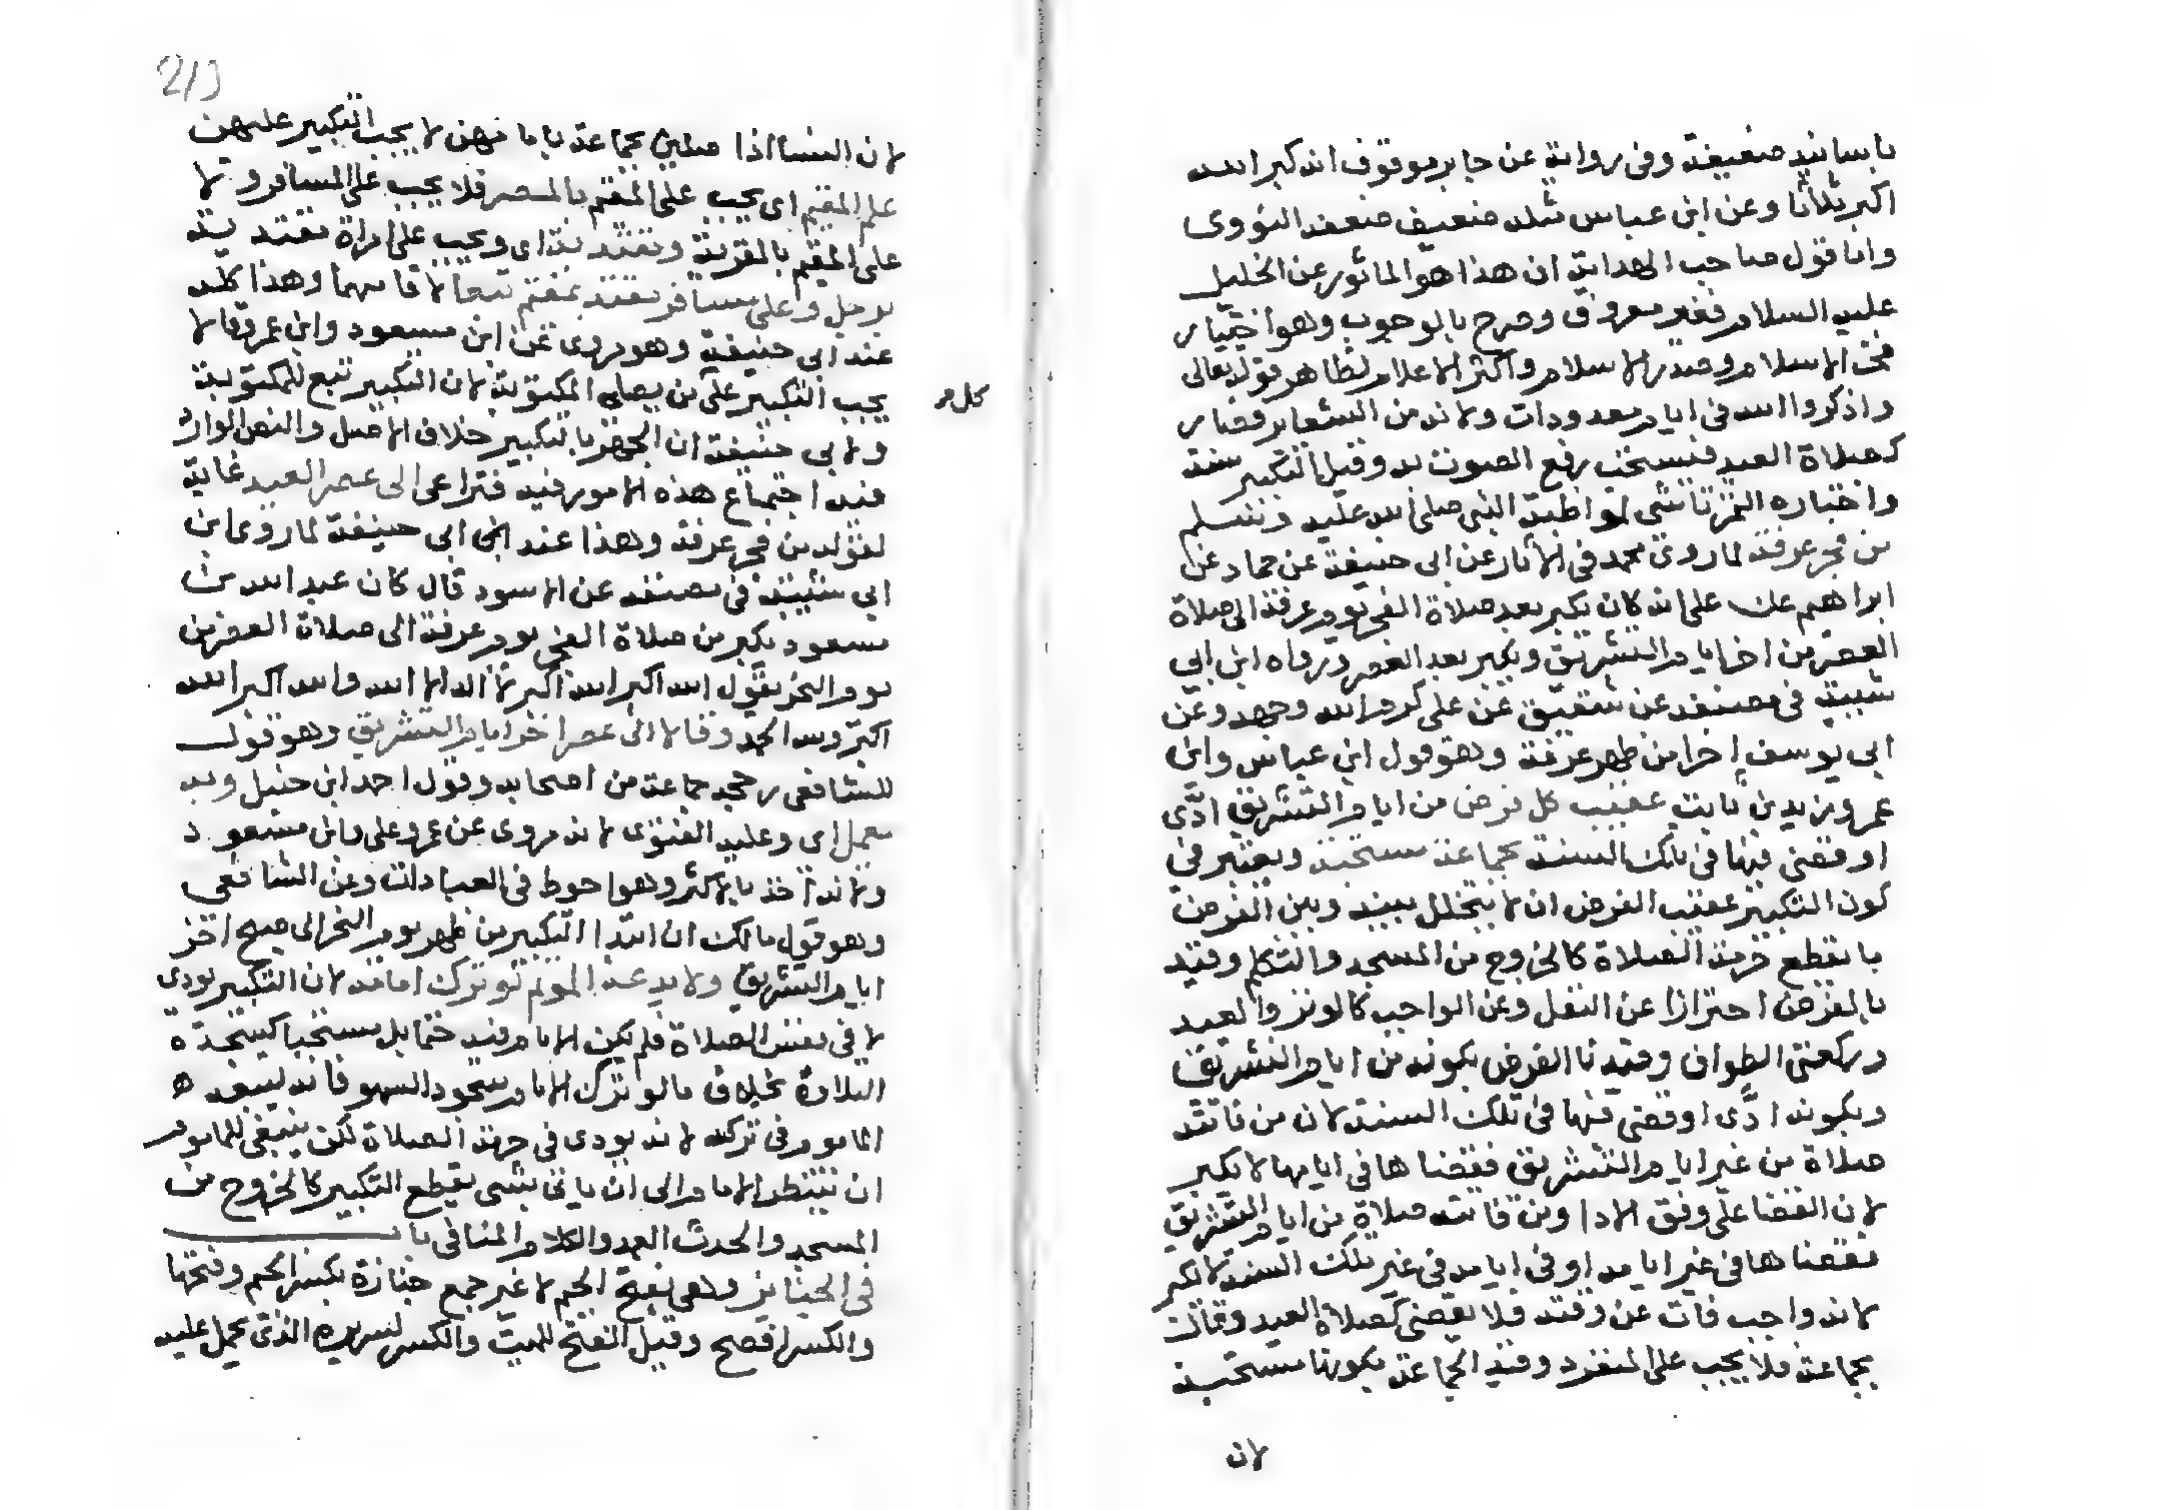 باسانيد ضعيفة وفي رواية عن جابر موقوف انه كبر الله
اكبر ثلاثا وعن ابن عباس مثله ضعيف ضعفه النووي
واما قول صاحب الهداية ان هذا هو الماثور عن الخليل
عليه السلام فغير معروف وصرح بالوجوب وهو اختيار
فخر الاسلام وصدر الاسلام واكثر الاعلام لظاهر قوله تعالى
واذكروا الله في ايام معدودات ولانه من الشعاير فصار
كصلاة العيد فيستحب رفع الصوت به وقيل التكبير سنة
واختاره التمرتاشي لمواظبة النبي صلى الله عليه وسلم
من فجر عرفة لما روى محمد في الاثار عن ابي حنيفة عن حماد عن
ابراهيم عن علي انه كان يكبر بعد صلاة الفجر يوم عرفة الى صلاة
العصر من اخر ايام التشريق ويكبر بعد العصر ورواه ابن ابي
شيبة في مصنفه عن شقيق عن علي كرم الله وجهه وعن
ابي يوسف اخرا من ظهر عرفة وهو قول ابن عباس وابن
عمر وزيد بن ثابت عقيب كل فرض من ايام التشريق ادّى
او قضى فيها في تلك السنة بجماعة مستحبة ويعتبر في
كون التكبير عقيب الفرض ان لا يتخلل بينه وبين الفرض
ما يقطع حرمة الصلاة كالخروج من المسجد والتكلم وقيد
بالفرض احترازا عن النفل وعن الواجب كالوتر والعيد
وركعتي الطواف وقيدنا الفرض بكونه من ايام التشريق
وبكونه ادّى او قضى فيها في تلك السنة لان من فاتته
صلاة من غير ايام التشريق فقضاها في ايامها لا يكبر
لان القضا على وفق الادا ومن فاتته صلاة من ايام التشريق
فقضاها في غير ايامه او في ايامه في غير تلك السنة لا يكبر
لانه واجب فات عن وقته فلا يقضى كصلاة العيد وقال
بجماعة فلا يجب على المنفرد وقيد الجماعة بكونها مستحبة
لان
لان النسا اذا صلين بجماعة بامامهن لا يجب التكبير عليهن
على المقيم اى يجب على المقيم بالمصر فلا يجب على المسافر ولا
على المقيم بالقرية ومقتدية اى ويجب على امراة مقتدية
برجل وعلى مسافر مقتد بمقيم تبعا لامامهما وهذا كله
عند ابي حنيفة وهو مروى عن ابن مسعود وابن عمر وقالا
يجب التكبير على من يصلي المكتوبة لان التكبير تبع للمكتوبة
كل م
ولابي حنيفة ان الجهر بالتكبير خلاف الاصل والنص الوارد
فيه اجتماع هذه الامور فيه فتراعى الى عصر العيد غاية
لقوله من فجر عرفة وهذا عند ابي حنيفة لما روى ابن
ابي شيبة في مصنفه عن الاسود قال كان عبد الله بن
مسعود يكبر من صلاة الفجر يوم عرفة الى صلاة العصر من
يوم النحر يقول الله اكبر الله اكبر لا اله الا الله والله اكبر الله
اكبر ولله الحمد وقالا الى عصر اخر ايام التشريق وهو قول
للشافعي رجحه جماعة من اصحابه وقول احمد ابن حنبل وبه
يعمل اى وعليه الفتوى لانه مروى عن عمر وعلى وابن مسعود
ولانه اخذ بالاكثر وهو احوط في العبادات وعن الشافعي
وهو قول مالك ان ابتدا التكبير من ظهر يوم النحر الى صبح اخر
ايام التشريق ولا يدعه الموتم لو ترك امامه لان التكبير يودى
لا في نفس الصلاة فلم يكن الامام فيه حتما بل مستحبا كسجدة
التلاوة بخلاف ما لو ترك الامام سجود السهو فانه ليسعه
الماموم في تركه لانه يودى في حرمة الصلاة لكن ينبغي للماموم
ان ينتظر الامام الى ان ياتي بشي يقطع التكبير كالخروج من
المسجد والحدث العمد والكلام المنافي باب
في الجنايز وهي بفتح الجيم لا غير جمع جنازة بكسر الجيم وفتحها
والكسر افصح وقيل الفتح للميت والكسر لسريره الذي يحمل عليه